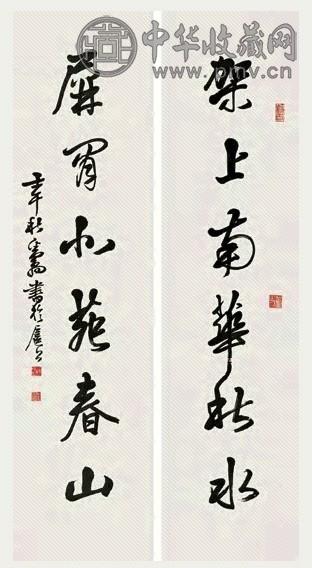 中华收藏网
www.pmv.cn
架上南華秋水
屏間北苑春山
壬午秋書於